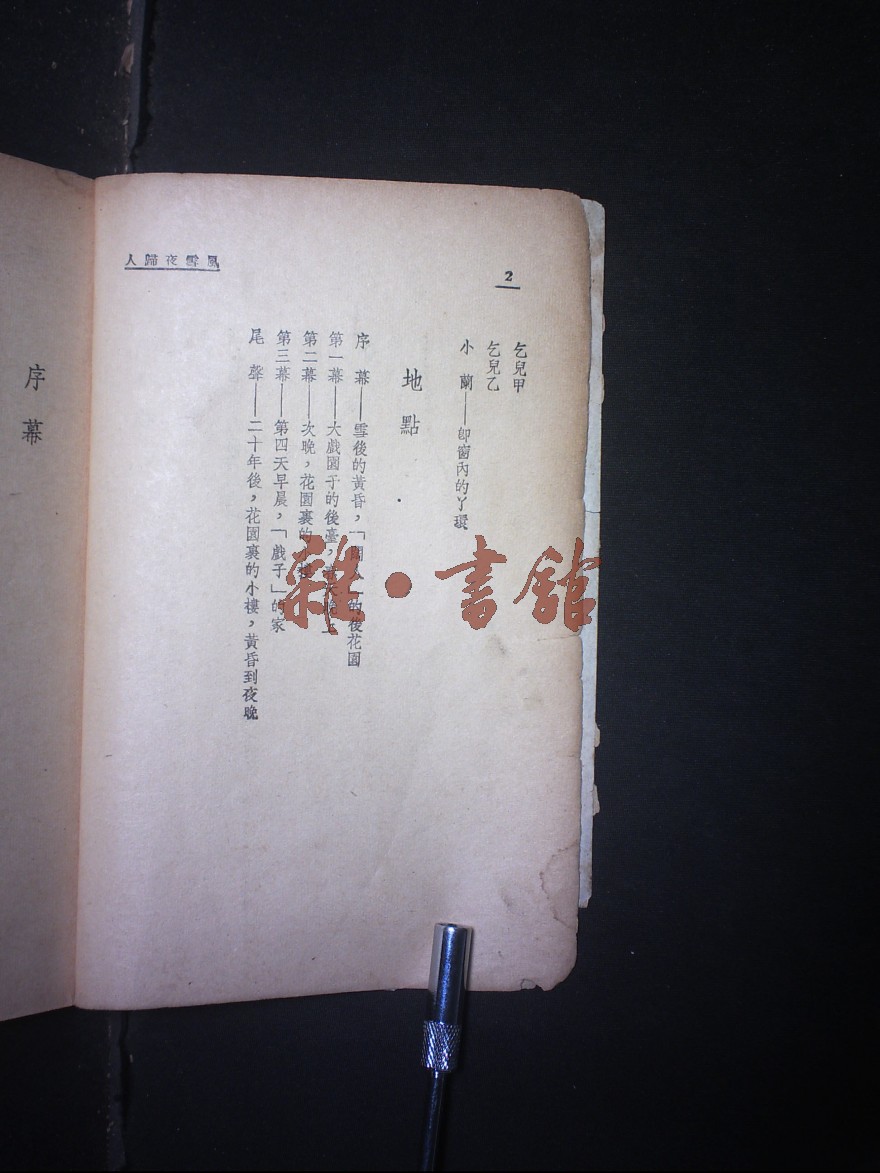 2
乞兒甲
乞兒乙
小 蘭——卽窗內的丫環
地點
序 幕——雪後的黃昏，「人」的後花園
第一幕——大戲園子的後臺，
第二幕——次晚，花園裏的
第三幕——第四天早晨，「戲子」的家
尾 聲——二十年後，花園裏的小樓，黃昏到夜晚
風雪夜歸人
序幕
雜·書館